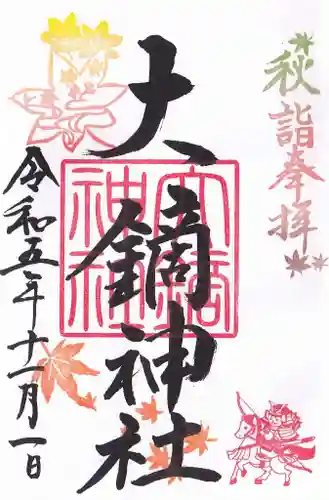 秋詣奉拝
大鏑神社
大鏑神社
令和五年十一月一日